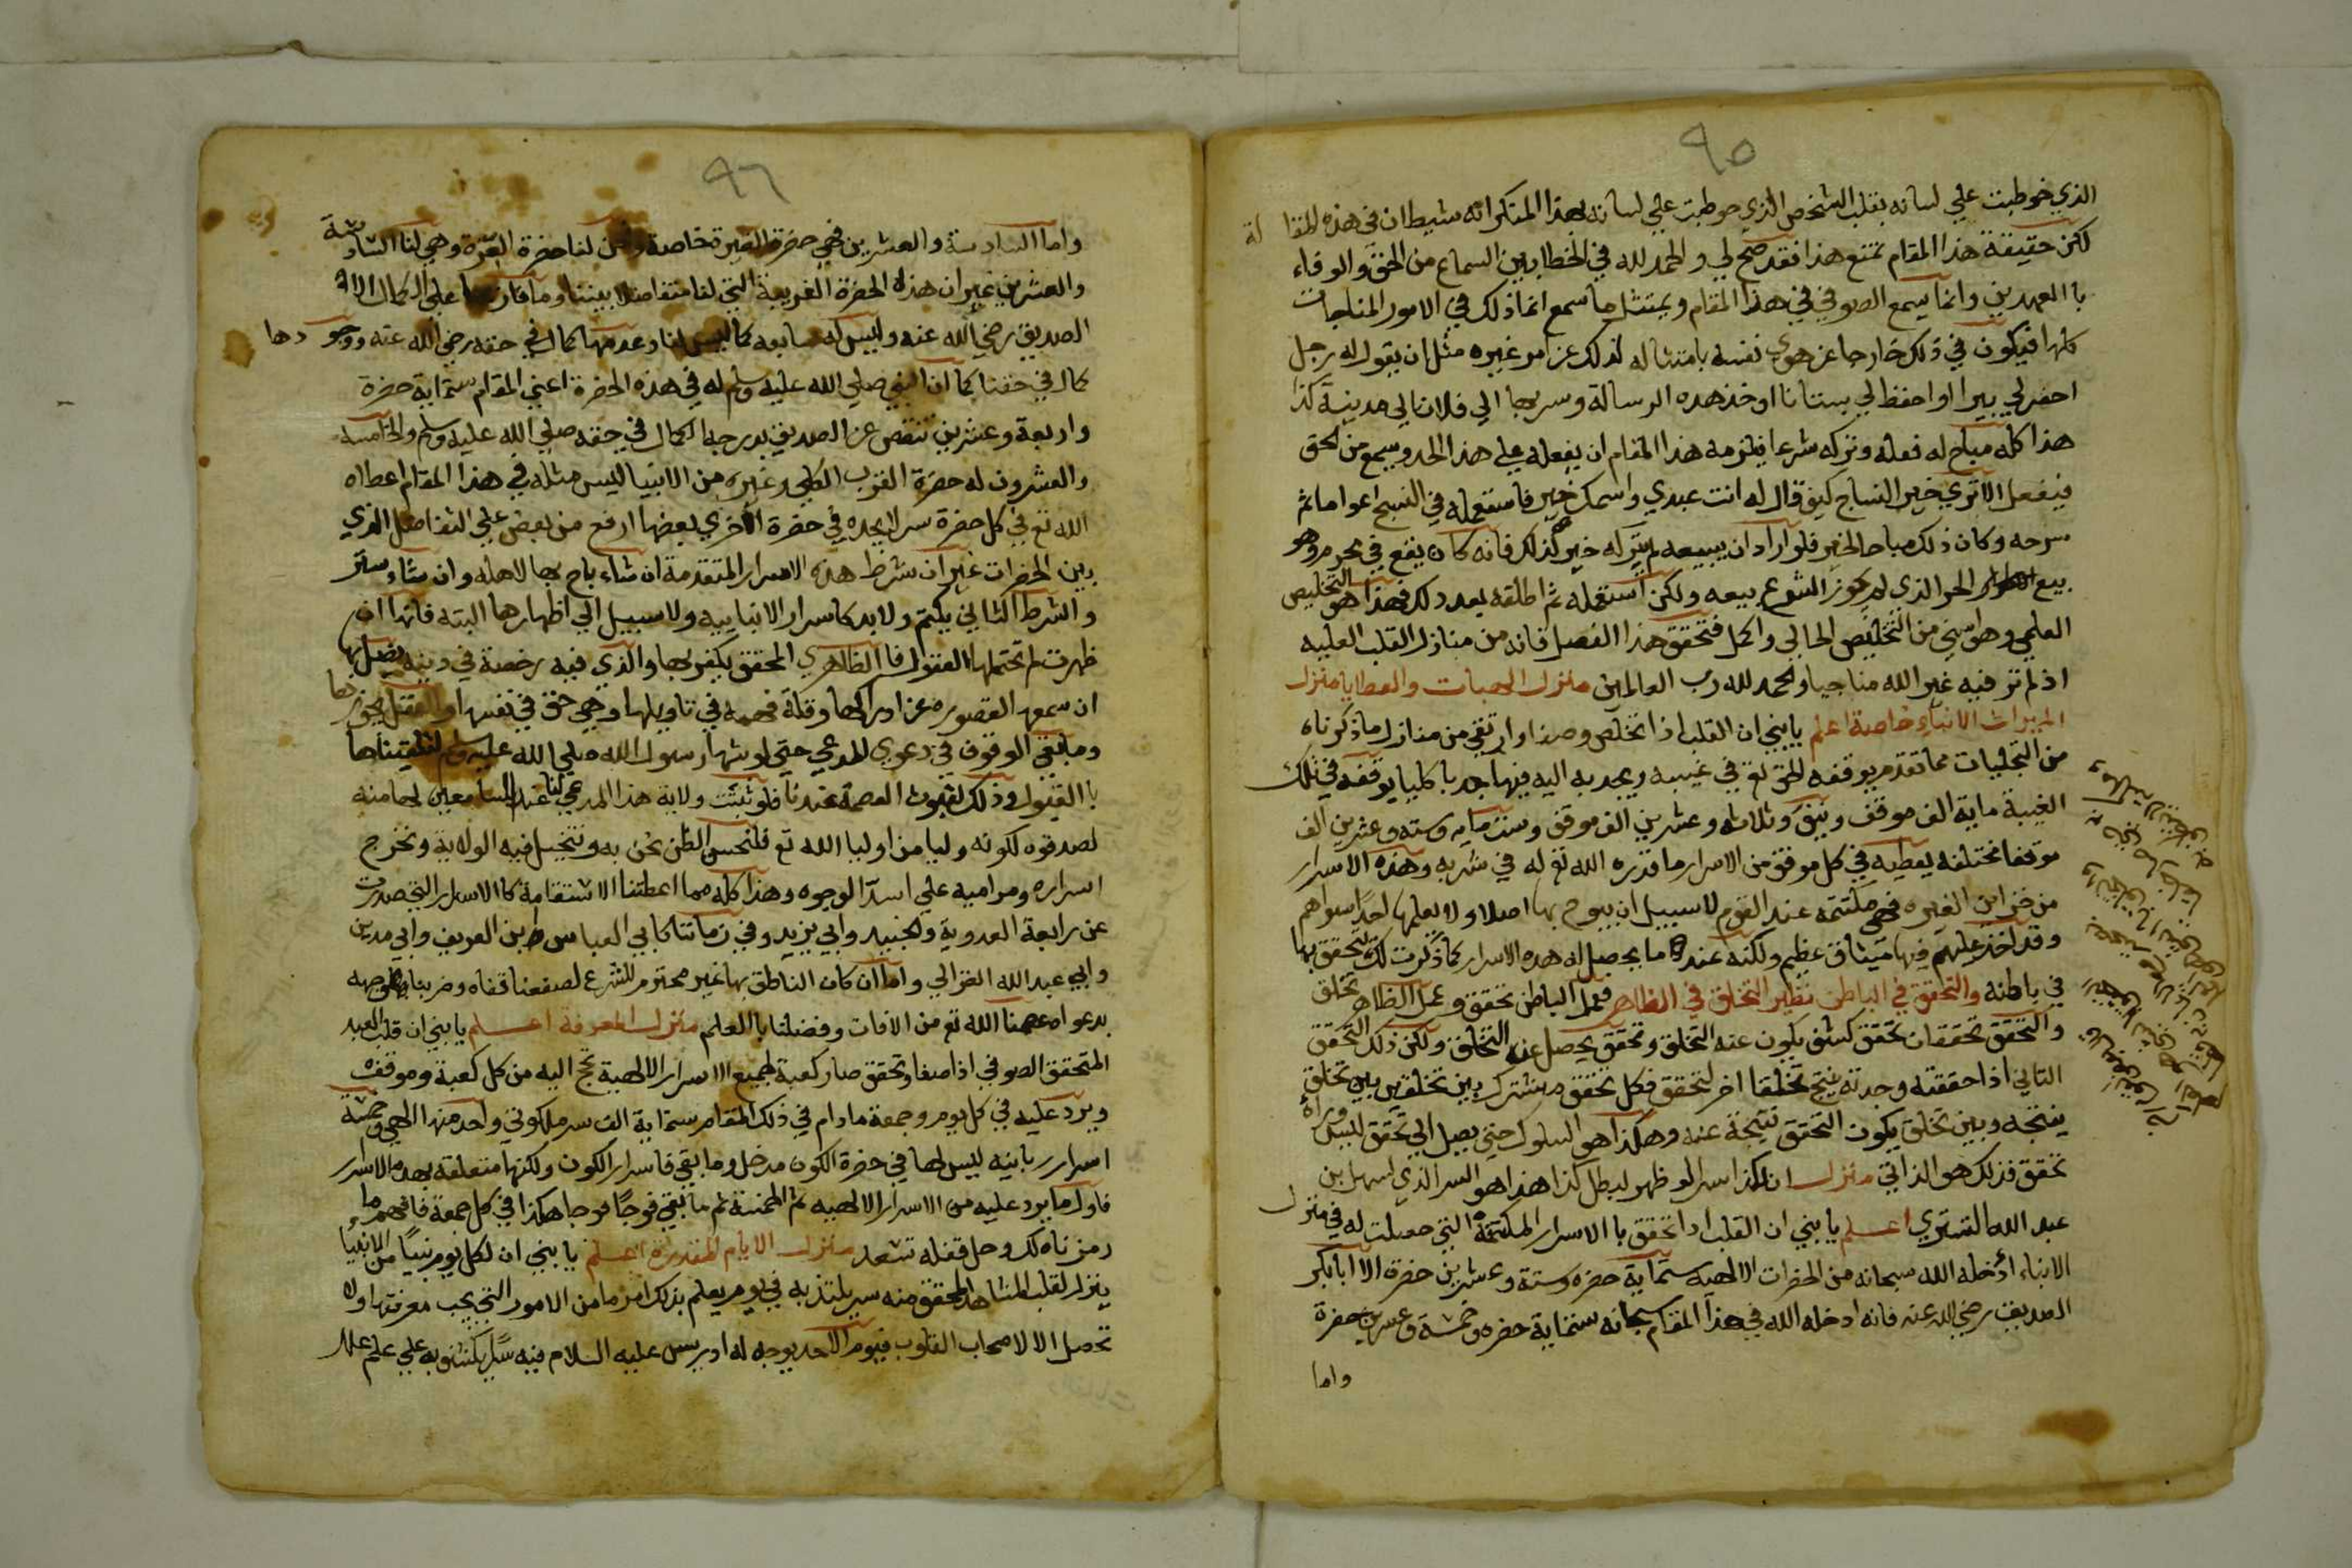 ٩٥
الذي خوطبت علي لسانه بقلب الشخص الذي خوطبت علي لسانه بهذا المتكرانه شيطان في هذه المقا لة
لكن حقيقة هذا المقام تمنع هذا فقد صح لي والحمد لله في الخطاب بين السماع من الحق والوفاء
با العهدين وانما يسمع الصوفي في هذا المقام ويمتثل ما سمع انما ذلك في الامور المناجات
كلها فيكون في ذلك خارجا عن هوي نفسه بامتثاله لذلك عن امر غيره مثل ان يقول له رجل
احفر لي بيرا او احفظ لي بستانا او خذ هده الرسالة وسر بها الي فلان الي مدينة كذا
هذا كله مباح له فعله وتركه شرعا فيلزمه هذا المقام ان يفعله علي هذا الحد ويسمع من الحق
فيفعل الا تري خير النساج كيف قال له انت عبدي واسمك خير فاستعمله في النسج اعواما ثم
سرحه وكان ذلك مباحا لخير فلو اراد ان يبيعه لم يتركه خير لذلك فانه كان يقع في محرم وهو
بيع الحر الذي لم يجوز الشرع بيعه ولكن استعمله ثم اطلقه بعد ذلك فهذا هو التخليص
العلمي وهو اسني من التخليص الحالي واكمل فتحقق هذا الفصل فانه من منازل القلب العليه
اذ لم تر فيه غير الله مناجيا والحمد لله رب العالمين منزل الهبات والعطايا منزل
الميراث الانبياء خاصة اعلم يا بني ان القلب اذا تخلص وصفا وارتقي من منازل ما ذكرناه
من التجليات مما تقدم يوقفه الحق تع في غيبه ويجد به اليه فيها جدبا كليا يوقفه في تلك
الغيبة ماية الف موقف ونيف وثلاثه وعشرين الف موقف وستماية وسته وعشرين الف
موقفا مختلفه يعطيه في كل موقف من الاسرار ما قدره الله تع له في شربه وهذه الاسرار
من خزاين الغيره فهي مكتتمه عند القوم لا سبيل ان يبوح بها اصلا ولا يعلمها احدا سواهم
وقد اخذ عليهم فيها ميثاق عظيم ولكنه عند ما يحصل له هده الاسرار كما ذكرت لك يتحقق بها
في باطنه والتحقق في الباطن نظير التخلق في الظاهر فعمل الباطن تحقق وعمل الظاهر تخلق
والتحقق تحققان تحقق كشف يكون عنه التخلق وتحقق يحصل عن التخلق ولكن ذلك التحقق
الثاني اذا حققته وجدته ينتج تخلقا اخر لتحقق فكل تحقق مشترك بين تخلقين بين تخلق
ينتجه وبين تخلق يكون التحقق نتيجة عنه وهكذا هو السلوك حتي يصل الي تحقق ليس وراه
تحقق فذلك هو الذاتي منزل ان لكذا سرا لو ظهر لبطل كذا هذا هو السر الذي لسهل بن
عبد الله التستري اعلم يا بني ان القلب اذا تحقق با الاسرار المكتتمة التي حصلت له في منزل
الانباء ادخله الله سبحانه من الحضرات الالهيه ستماية حضره وستة وعشرين حضرة الا ابا بكر
الصديق رضي الله عنه فانه ادخله الله في هذا المقام سبحانه ستماية حضره وخمسة وعشرين حضرة
واما
٩٦
واما السادسة والعشرين فهي حضرة الغيرة خاصة ونحن لنا حضرة الغيرة وهي لنا السادسة
والعشرين غير ان هذه الحضرة الغريبة التي لنا متفاضلا بيننا وما فاز بها علي الكمال الا
الصديق رضي الله عنه وليس له سابعه كما ليس لنا وعدمها كمال في حقه رضي الله عنه ووجو دها
كمال في حقنا كما ان النبي صلي الله عليه وسلم له في هذه الحضرة اعني المقام ستماية حضرة
واربعة وعشرين تنقص عن الصديق بدرجه الكمال في حقه صلي الله عليه وسلم والخامسه
والعشرون له حضرة القرب الكلي وغيره من الانبيا ليس مثله في هذا المقام اعطاه
الله تع في كل حضرة سر لا يجده في حضرة الاخري بعضها ارفع من بعض علي التفاضل الذي
بين الحضرات غير ان شرط هذه الاسرار المتقدمة ان شاء باح بها لاهله وان شاء ستر
والشرط الثاني يكتم ولابد كاسرار الانبايه ولا سبيل الي اظهارها البته فانها ان
ظهرت لم تحتملها العقول فا الظاهري المحقق يكفر بها والذي فيه رخصة في دينه يضل بها
ان سمعها لقصوره عن ادراكها وقلة فهمه في تاويلها وهي حق في نفسها والعقل يجوزها
وما بقي الوقوف في دعوي المدعي حتي لو شهد رسول الله صلي الله عليه وسلم لتلقيناها
با القبول وذلك لثبوت العصمة عندنا فلو ثبتت ولاية هذا المدعي لنا عند السامعين لها منه
لصدقوه لكونه وليا من اوليا الله تع فلنحسن الظن نحن به ونتخيل فيه الولاية ونخرج
اسراره ومراميه علي اسد الوجوه وهذا كله مما اعطتنا الاستقامة كا الاسرار التي صدرت
عن رابعة العدوية والجنيد وابي يزيد وفي زماننا كابي العباس بن العريف وابي مدين
وابي عبد الله الغزالي واما ان كان الناطق بها غير محترم للشرع لصفعنا قفاه وضربنا بها وجهه
بدعواه عصمنا الله تع من الافات وفضلنا با العلم منزل المعرفة اعلم يا بني ان قلب العبد
المتحقق الصوفي اذا صفا وتحقق صار كعبة لجميع الاسرار الالهية تحج اليه من كل كعبة وموقف
ويرد عليه في كل يوم وجمعة ما دام في ذلك المقام ستماية الف سر ملكوتي واحد منها الهي وخمسة
اسرار ربانيه ليس لها في حضرة الكون مدخل وما بقي فاسرار الكون ولكنها متعلقه بهده الاسرار
فاول ما يرد عليه من الاسرار الالهيه ثم الخمسة ثم ما بقي فوجا فوجا هكذا في كل جمعة فافهم ما
رمزناه لك وحل قفله تسعد منزل الايام المقدرة اعلم يا بني ان لكل يوم نبيا من الانبيا
ينزل لقلب المشاهد المحقق منه سر يلتذ به في يومه يعلم بذلك امر ما من الامور التي يجب معرفتها ولا
تحصل الا لاصحاب القلوب فيوم الاحد يوجه له ادريس عليه السلام فيه سرا يكشف به علي علم علل